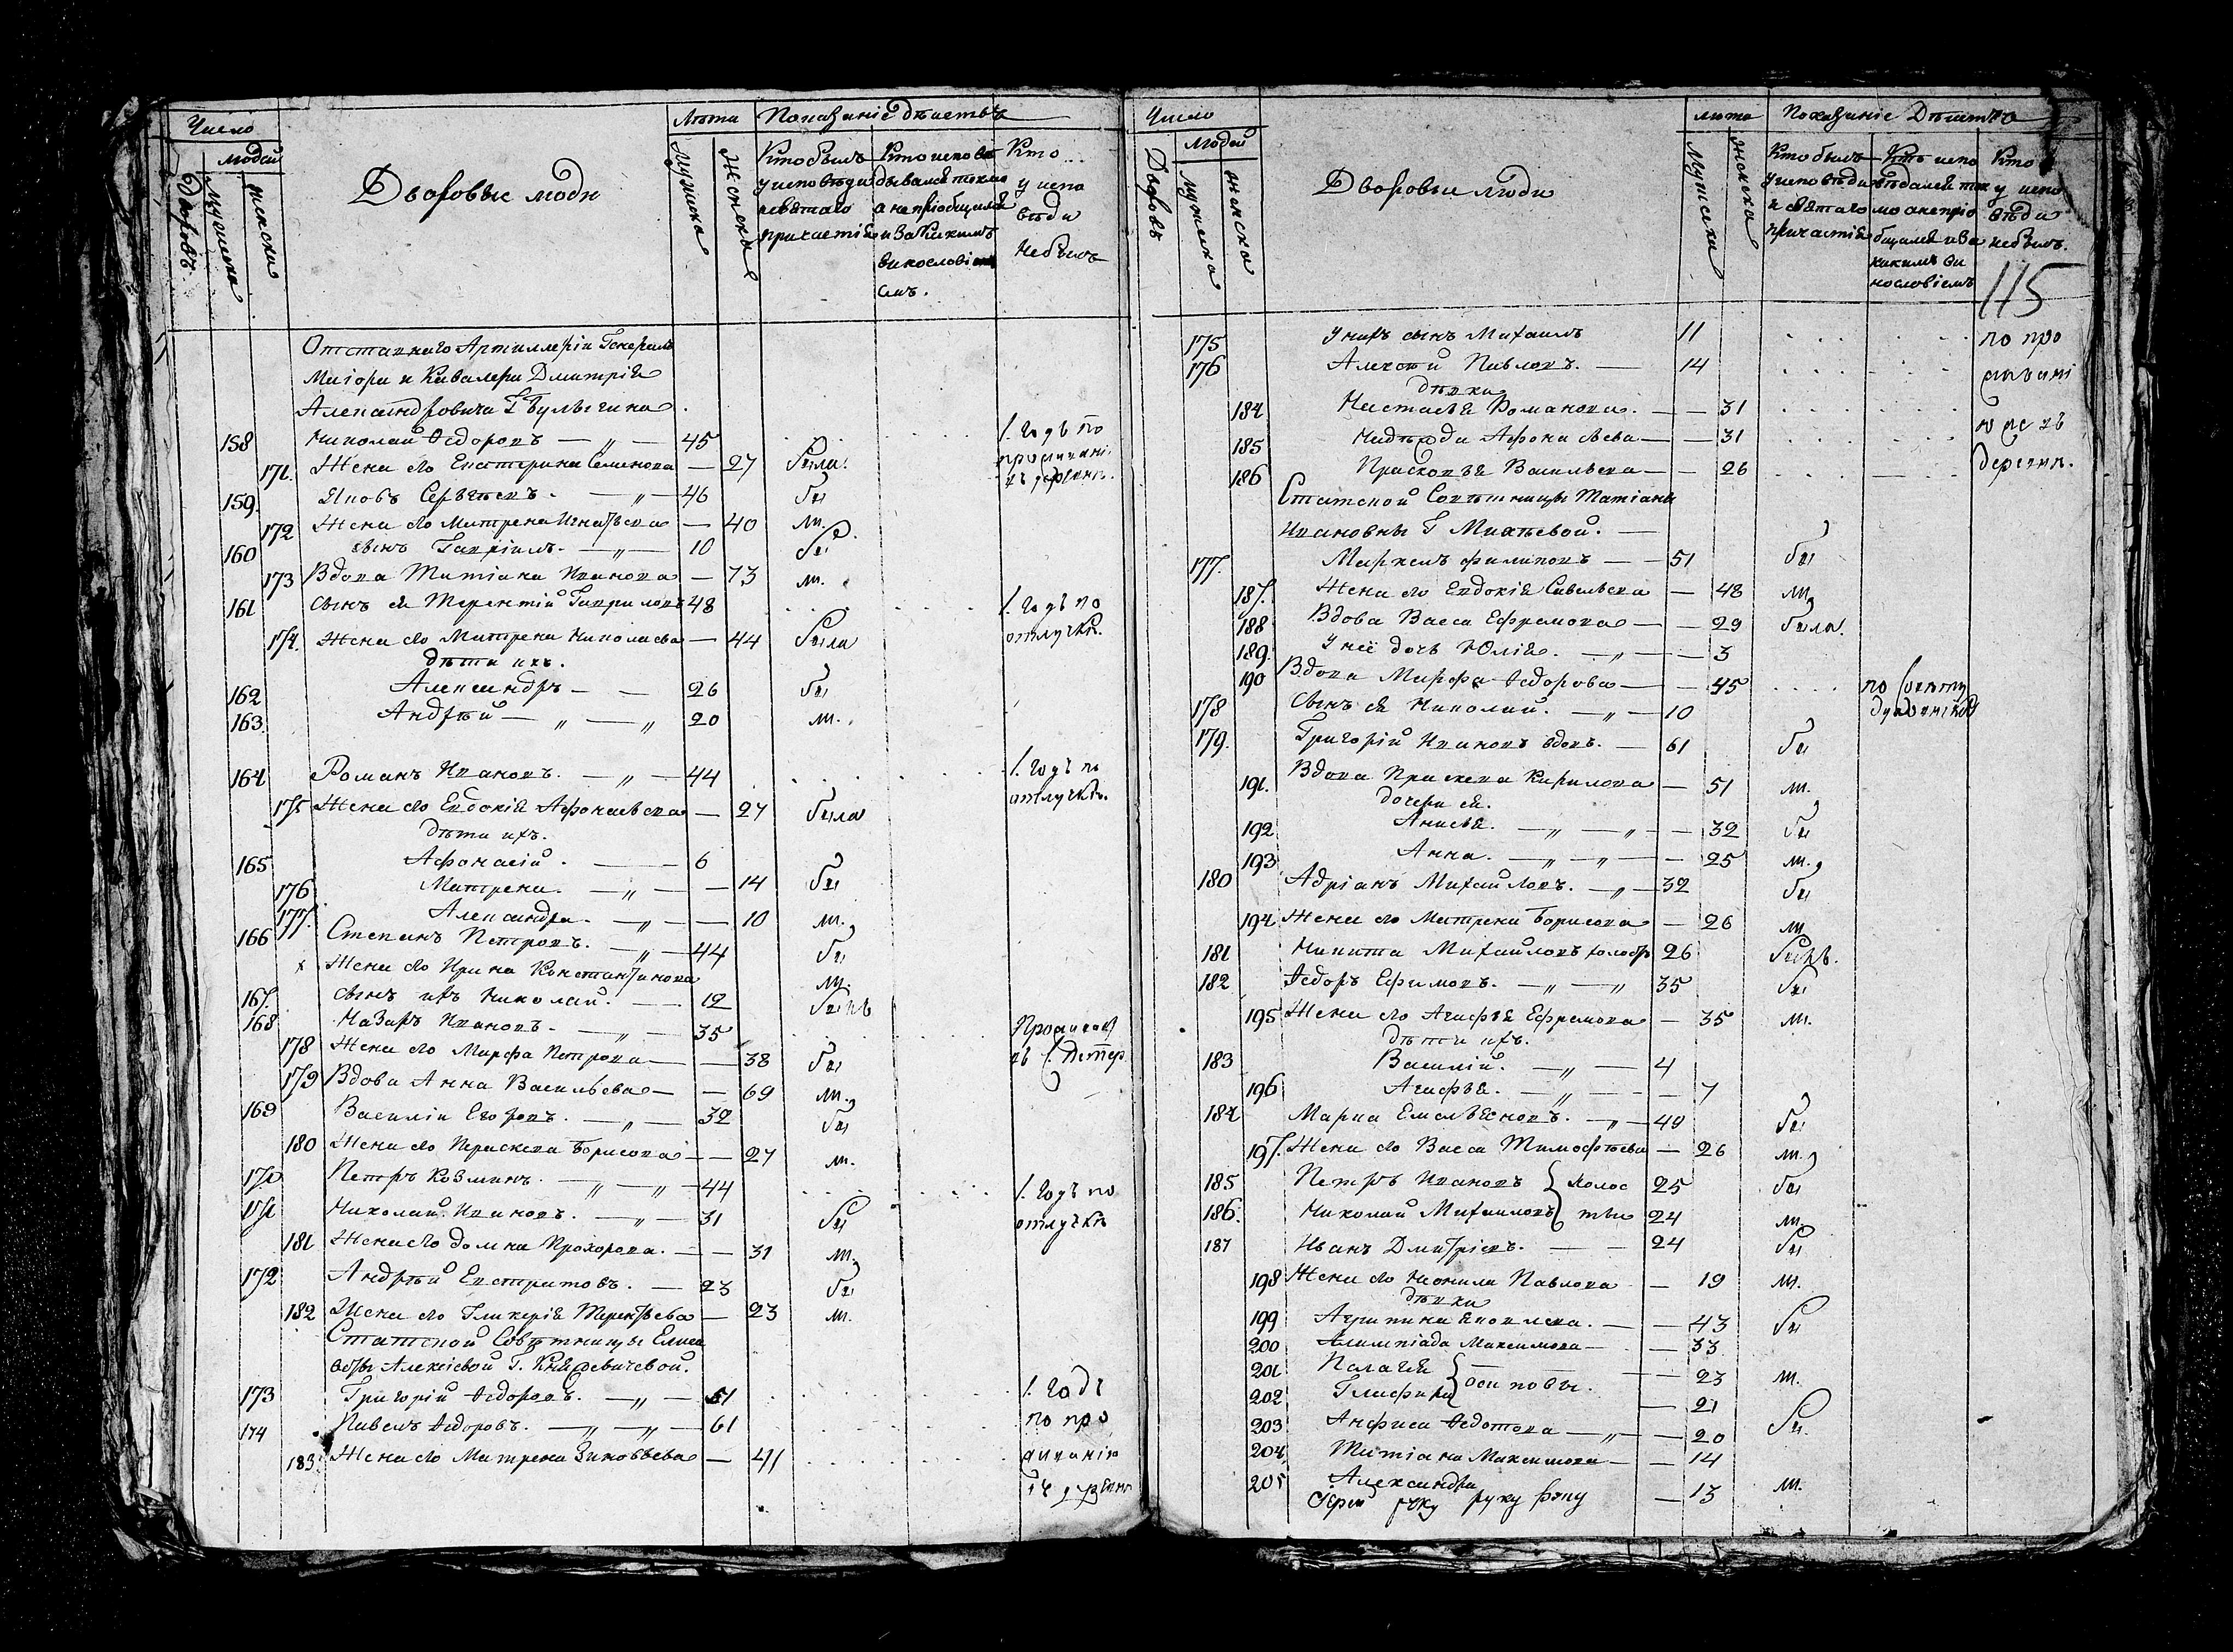 Число
Людей
Дворовъ
Мужеска
Женска
Дворовые люди
Лѣта
Мужеска
Женска
Показаніе дѣйствъ
Кто былъ у исповѣди и святаго причастія
Кто исповѣдывался токмо а не пріобщился и за какимъ винословіемъ.
Кто у исповѣди не былъ
Отставнаго Артиллеріи Генералъ
Маіора и Кавалера Дмитрія
Александровича Г Булыгина.
158 Николай Ѳедоровъ — „ — 45 1. годъ по
171. Жена его Екатерина Семенова — 27 была.
159. Яковъ Сергѣевъ. — „ — 46 бы
172 Жена его Матрена Игнатьева — 40 ли.
160 сынъ Гавріилъ. — „ — 10 бы
173 Вдова Татіана Иванова — 73 ли.
161 сынъ ея Терентій Гавриловъ 48 1. годъ по
174. Жена его Матрена Николаева — 44 была отлучкѣ.
дѣти ихъ.
162 Александръ — — 26 бы
163. Андрей — „ — „ 20 ли.
164 Романъ Ивановъ. — „ — 44 1. годъ по
175 Жена его Евдокія Афонасьева — 27 была отлучкѣ.
дѣти ихъ.
165 Афонасій. — — 6
176 Матрена. — „ — — 14 бы
177. Александра. — „ — — 10 ли.
166 Степанъ Петровъ. — „ — 44 бы
х Жена его Ирина Константинова ли.
167. сынъ ихъ Николай. — — 12 былъ
168 Назаръ Ивановъ. — „ — 35
178 Жена его Марфа Петрова — — 38 бы
179 Вдова Анна Васильева — — 69 ли.
169 Василій Егоровъ. — „ — 32 бы
180 Жена его Параскева Борисова — — 27 ли.
170 Петръ Козминъ. — „ — „ — 44 1. годъ по
171 Николай Ивановъ. — „ — 31 бы отлучкѣ
181 Жена его Домна Прохорова. — — 31 ли.
172 Андрей Евстратовъ. — 23 бы
182 Жена его Гликерія Терентьева — 23 ли.
Статской Совѣтницы Елиса
веты Алексіевой Г. Княжевичевой.
173 Григорій Ѳедоровъ. — „ — 51 1. годъ
174 Павелъ Ѳедоровъ. — „ — „ — 61 по про
183. Жена его Матрена Зиновьева — 41
Число
Людей
Дворовъ
Мужеска
Женска
Дворовые люди
Лѣта
Мужеска
Женска
Показаніе Дѣйства
Кто былъ у исповѣди и святаго причастія
Кто исповѣдался токмо а не пріобщался и за какимъ винословіемъ
Кто у исповѣди не былъ.
115
175 У нихъ сынъ Михаилъ 11 по про
176 Алексѣй Павловъ. — 14
дѣвки
184 Настасья Романова. — — 31
185 Надежда Афонасьева — — 31
186 Прасковья Васильева — — 26 деревнѣ.
Статской Совѣтницы Татіаны
Ивановны Г Михѣевой. —
177. Маркелъ Филиповъ — — 51 бы
187. Жена его Евдокія Савельева — 48 ли
188 Вдова Васса Ефремова — — 29 была.
189. У неё дочь Юлія. — „ — — 3
190 Вдова Марфа Ѳедорова — — 45 по совѣту
178 Сынъ ея Николай. — „ — 10
179. Григорій Ивановъ вдовъ. — 61 бы
191. Вдова Праскева Кирилова — 51 ли.
дочери ея.
192 Анисья. — „ — „ — — 32 бы
193 Анна. — „ — „ — — 25 ли.
180 Адріанъ Михайловъ. — „ — 32 бы
194 Жена его Матрена Борисова — 26 ли
181 Никита Михайловъ холостъ 26 былъ.
182 Ѳедоръ Ефимовъ. — „ — „ 35 бы
195 Жена его Агафья Ефремова — 35 ли.
дѣти ихъ.
183 Василій. — „ — 4
196 Агафья. — „ — — — 7
184 Марка Емельяновъ. — „ — 49 бы
197. Жена его Васса Тимофѣева — 26 ли.
185 Петръ Ивановъ } холос 25 бы
186. Николай Михайловъ } тые 24 ли.
187 Иванъ Дмитріевъ. — — 24 бы
198 Жена его Неонила Павлова — 19 ли.
дѣвки
199 Агрипина Яковлева. — — 43 бы
200 Алимпіада Максимова — — 33
201 Палагея { — — 23 ли.
202 Глафира { Осиповы. — 21
203 Анфиса Ѳедотова — „ — 20 бы.
204 Татіана Максимова — — 14
205 Александра — 13 ли.